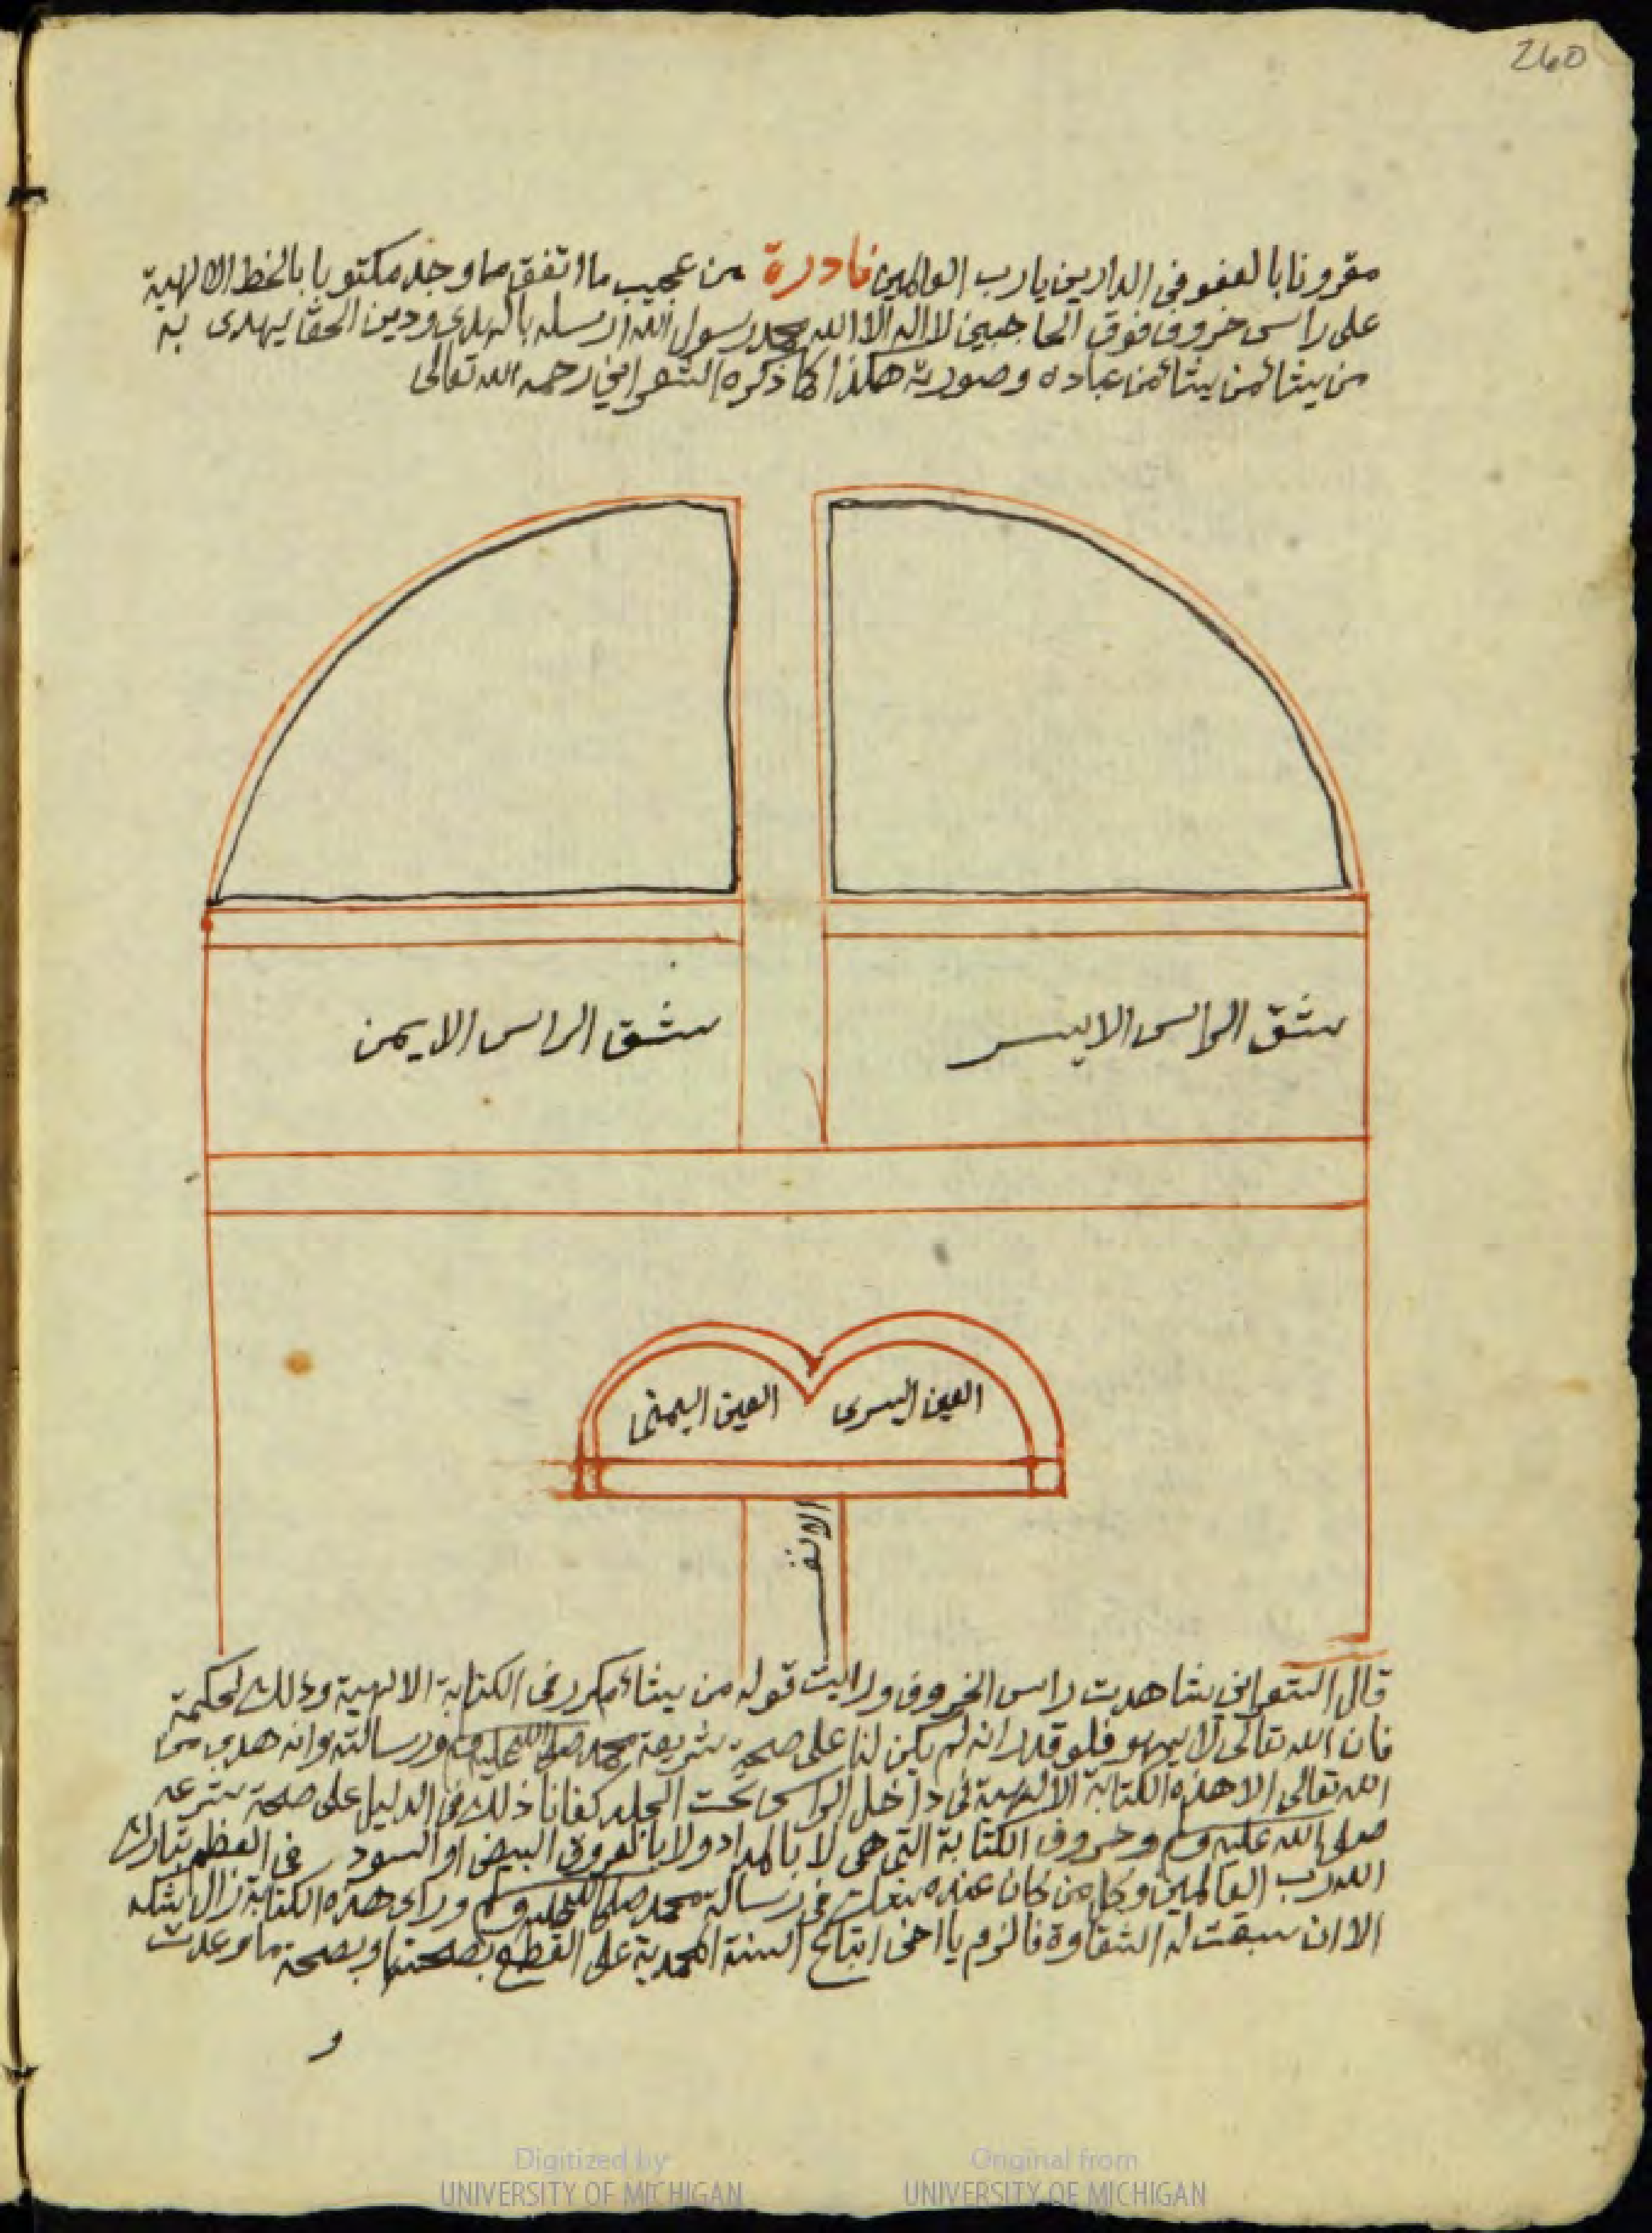 260
مقرونا بالعفو في الدارين يارب العالمين نادرة من عجيب ما اتفق مما وجد مكتوبا بالخط الالهية
على راس خروف فوق الحاجبين لا اله الا الله محمد رسول الله ارسله بالهدى ودين الحق يهدى به
من يشاء من يشاء من عباده وصورته هكذا كما ذكره الشعراني رحمه الله تعالى
شق الراس الايسر
شق الراس الايمن
العين اليسرى
العين اليمنى
الانف
قال الشعراني شاهدت راس الخروف ورايت قوله من يشاء مكرر فى الكتابة الالهية وذلك لحكمة
فان الله تعالى لا يسهو فلو قدر انه لم يكن لنا على صحة شريعة محمد صلى الله عليه وسلم ورسالته وانه هدى من
الله تعالى الا هذه الكتابة الالهية فى داخل الراس تحت الجلد كفانا ذلك فى الدليل على صحة شرعه
صلى الله عليه وسلم وحروف الكتابة التى هى لا بالمداد ولا بالعروق البيض او السود فى العظم تبارك
الله رب العالمين وكل من كان عنده شك فى رسالة محمد صلى الله عليه وسلم وراى هذه الكتابة زال شكه
الا ان سبقت له الشقاوة فالزم يا اخى اتباع السنة المحمدية على القطع بصحتها وبصحة ما وعدت
و
Digitized by
UNIVERSITY OF MICHIGAN
Original from
UNIVERSITY OF MICHIGAN